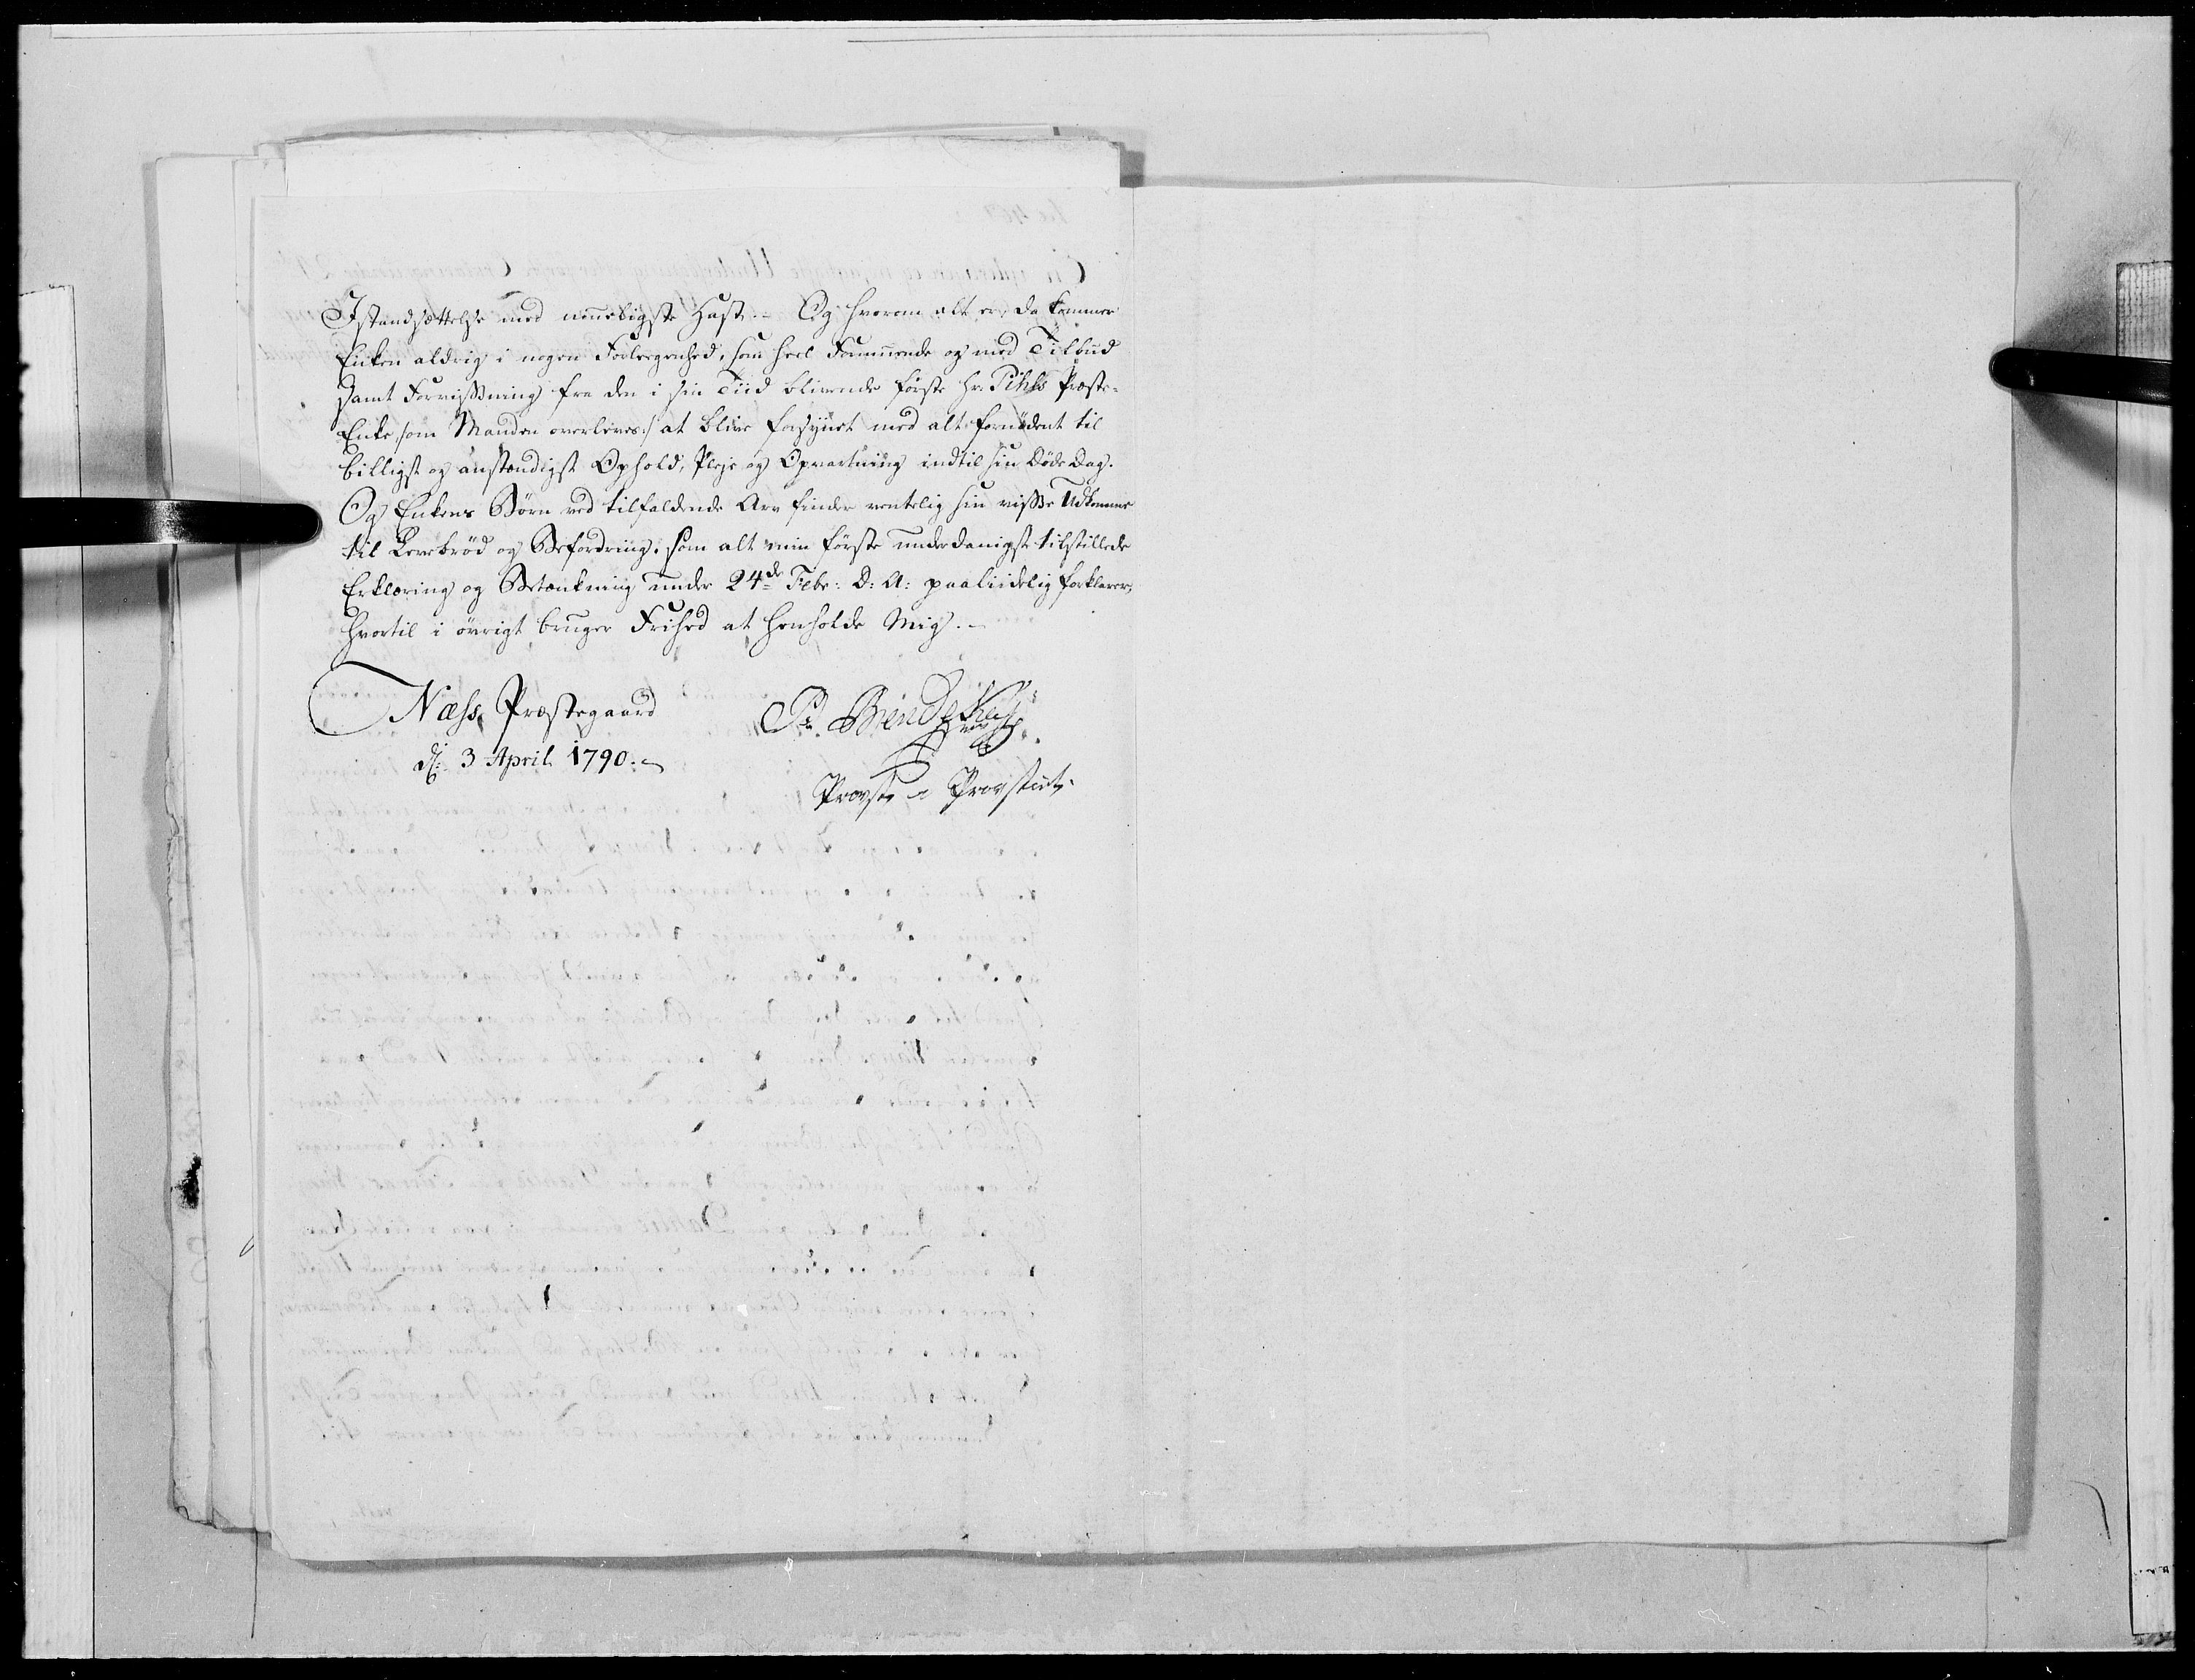 Istandsættelse med mueligste Hast. - Og hvorom alt er, da kommer
Enken aldrig i nogen Forlegenhed, som heel Formuende og med Tilbud
samt Forvissning fra den i sin Tiid blivende første Hr. Pihls Præste-
Enke, som Manden overlever:/ at blive forsynet med alt fornödent til
billigst og anstændigst Ophold, Pleje og Opvartning indtil sin Döde Dag.
Og Enkens Börn ved tilfaldende Arv finder ventelig sin visse Udkomme
til Levebröd og Befordring, som alt min förste underdanigst tilstillede
Erklæring og Betænkning under 24de Febr: D: A: paaliidelig forklarer,
hvortil i övrigt bruger Frihed at henholde Mig. -
Næss Præstegaard
d: 3 April 1790. -
Provst